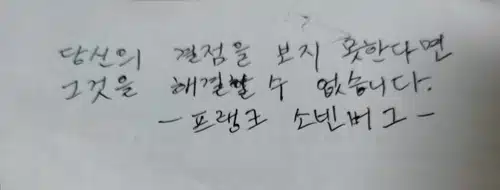 당신의 결점을 보지 못한다면
그것을 해결할 수 없습니다.
- 프랭크 소빈버그 -